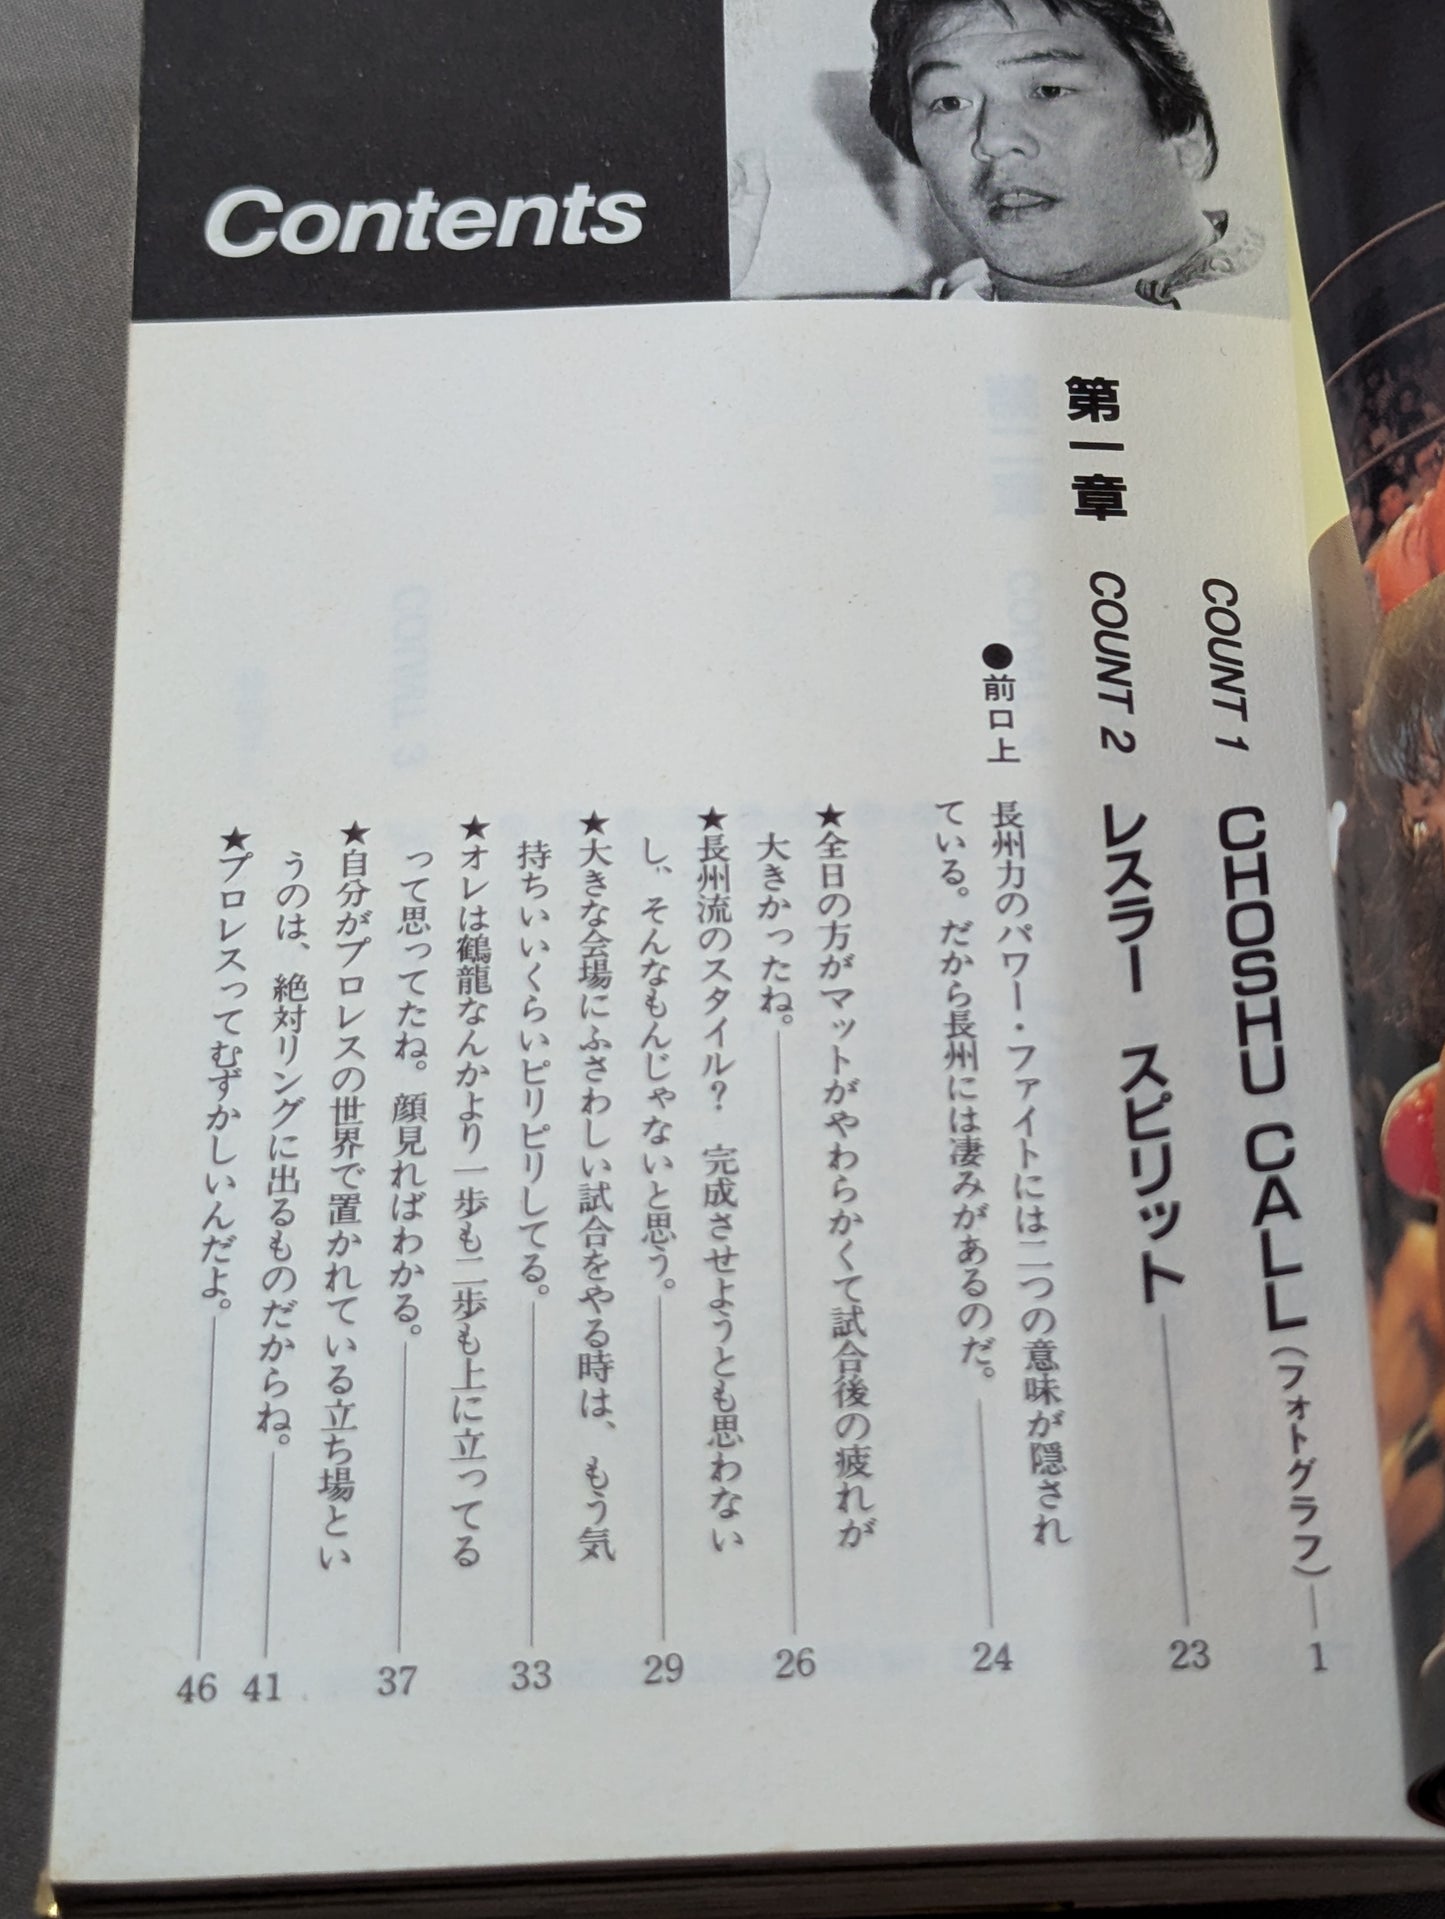 Contents
COUNT 1 CHOSHU CALL（フォトグラフ） 1
第一章 COUNT 2 レスラー スピリット 23
●前口上 長州力のパワー・ファイトには二つの意味が隠され
ている。だから長州には凄みがあるのだ。 24
★全日の方がマットがやわらかくて試合後の疲れが
大きかったね。 26
★長州流のスタイル？ 完成させようとも思わない
し、そんなもんじゃないと思う。 29
★大きな会場にふさわしい試合をやる時は、もう気
持ちいいくらいピリピリしてる。 33
★オレは鶴龍なんかより一歩も二歩も上に立ってる
って思ってたね。顔見ればわかる。 37
★自分がプロレスの世界で置かれている立ち場とい
うのは、絶対リングに出るものだからね。 41
★プロレスってむずかしいんだよ。 46